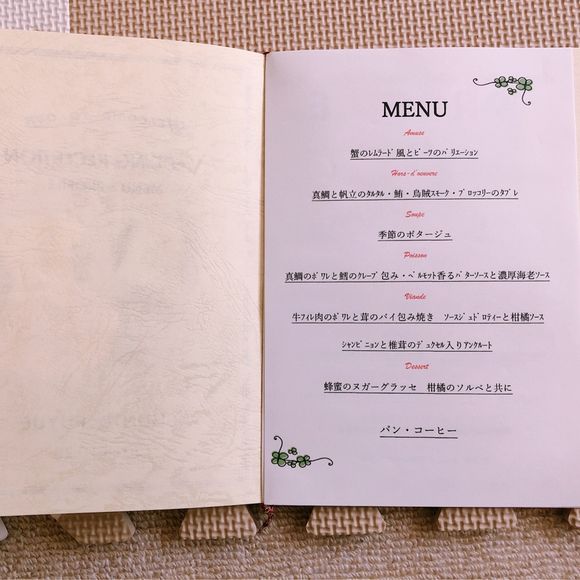 MENU
Amuse
蟹のﾚﾑﾗｰﾄﾞ風とﾋﾞｰﾂのﾊﾞﾘｴｰｼｮﾝ
Hors-d'oeuvere
真鯛と帆立のﾀﾙﾀﾙ・鮪・烏賊ｽﾓｰｸ・ﾌﾞﾛｯｺﾘｰのﾀﾌﾞﾚ
Soupe
季節のポタージュ
Poisson
真鯛のﾎﾟﾜﾚと鱈のｸﾚｰﾌﾟ包み・ﾍﾞﾙﾓｯﾄ香るﾊﾞﾀｰｿｰｽと濃厚海老ｿｰｽ
Viande
牛ﾌｨﾚ肉のﾎﾟﾜﾚと茸のパイ包み焼き　ｿｰｽｼﾞｭﾄﾞﾛﾃｨｰと柑橘ｿｰｽ
ｼｬﾝﾋﾟﾆｮﾝと椎茸のﾃﾞｭｸｾﾙ入りｱﾝｸﾙｰﾄ
Dessert
蜂蜜のヌガーグラッセ　柑橘のソルベと共に
パン・コーヒー